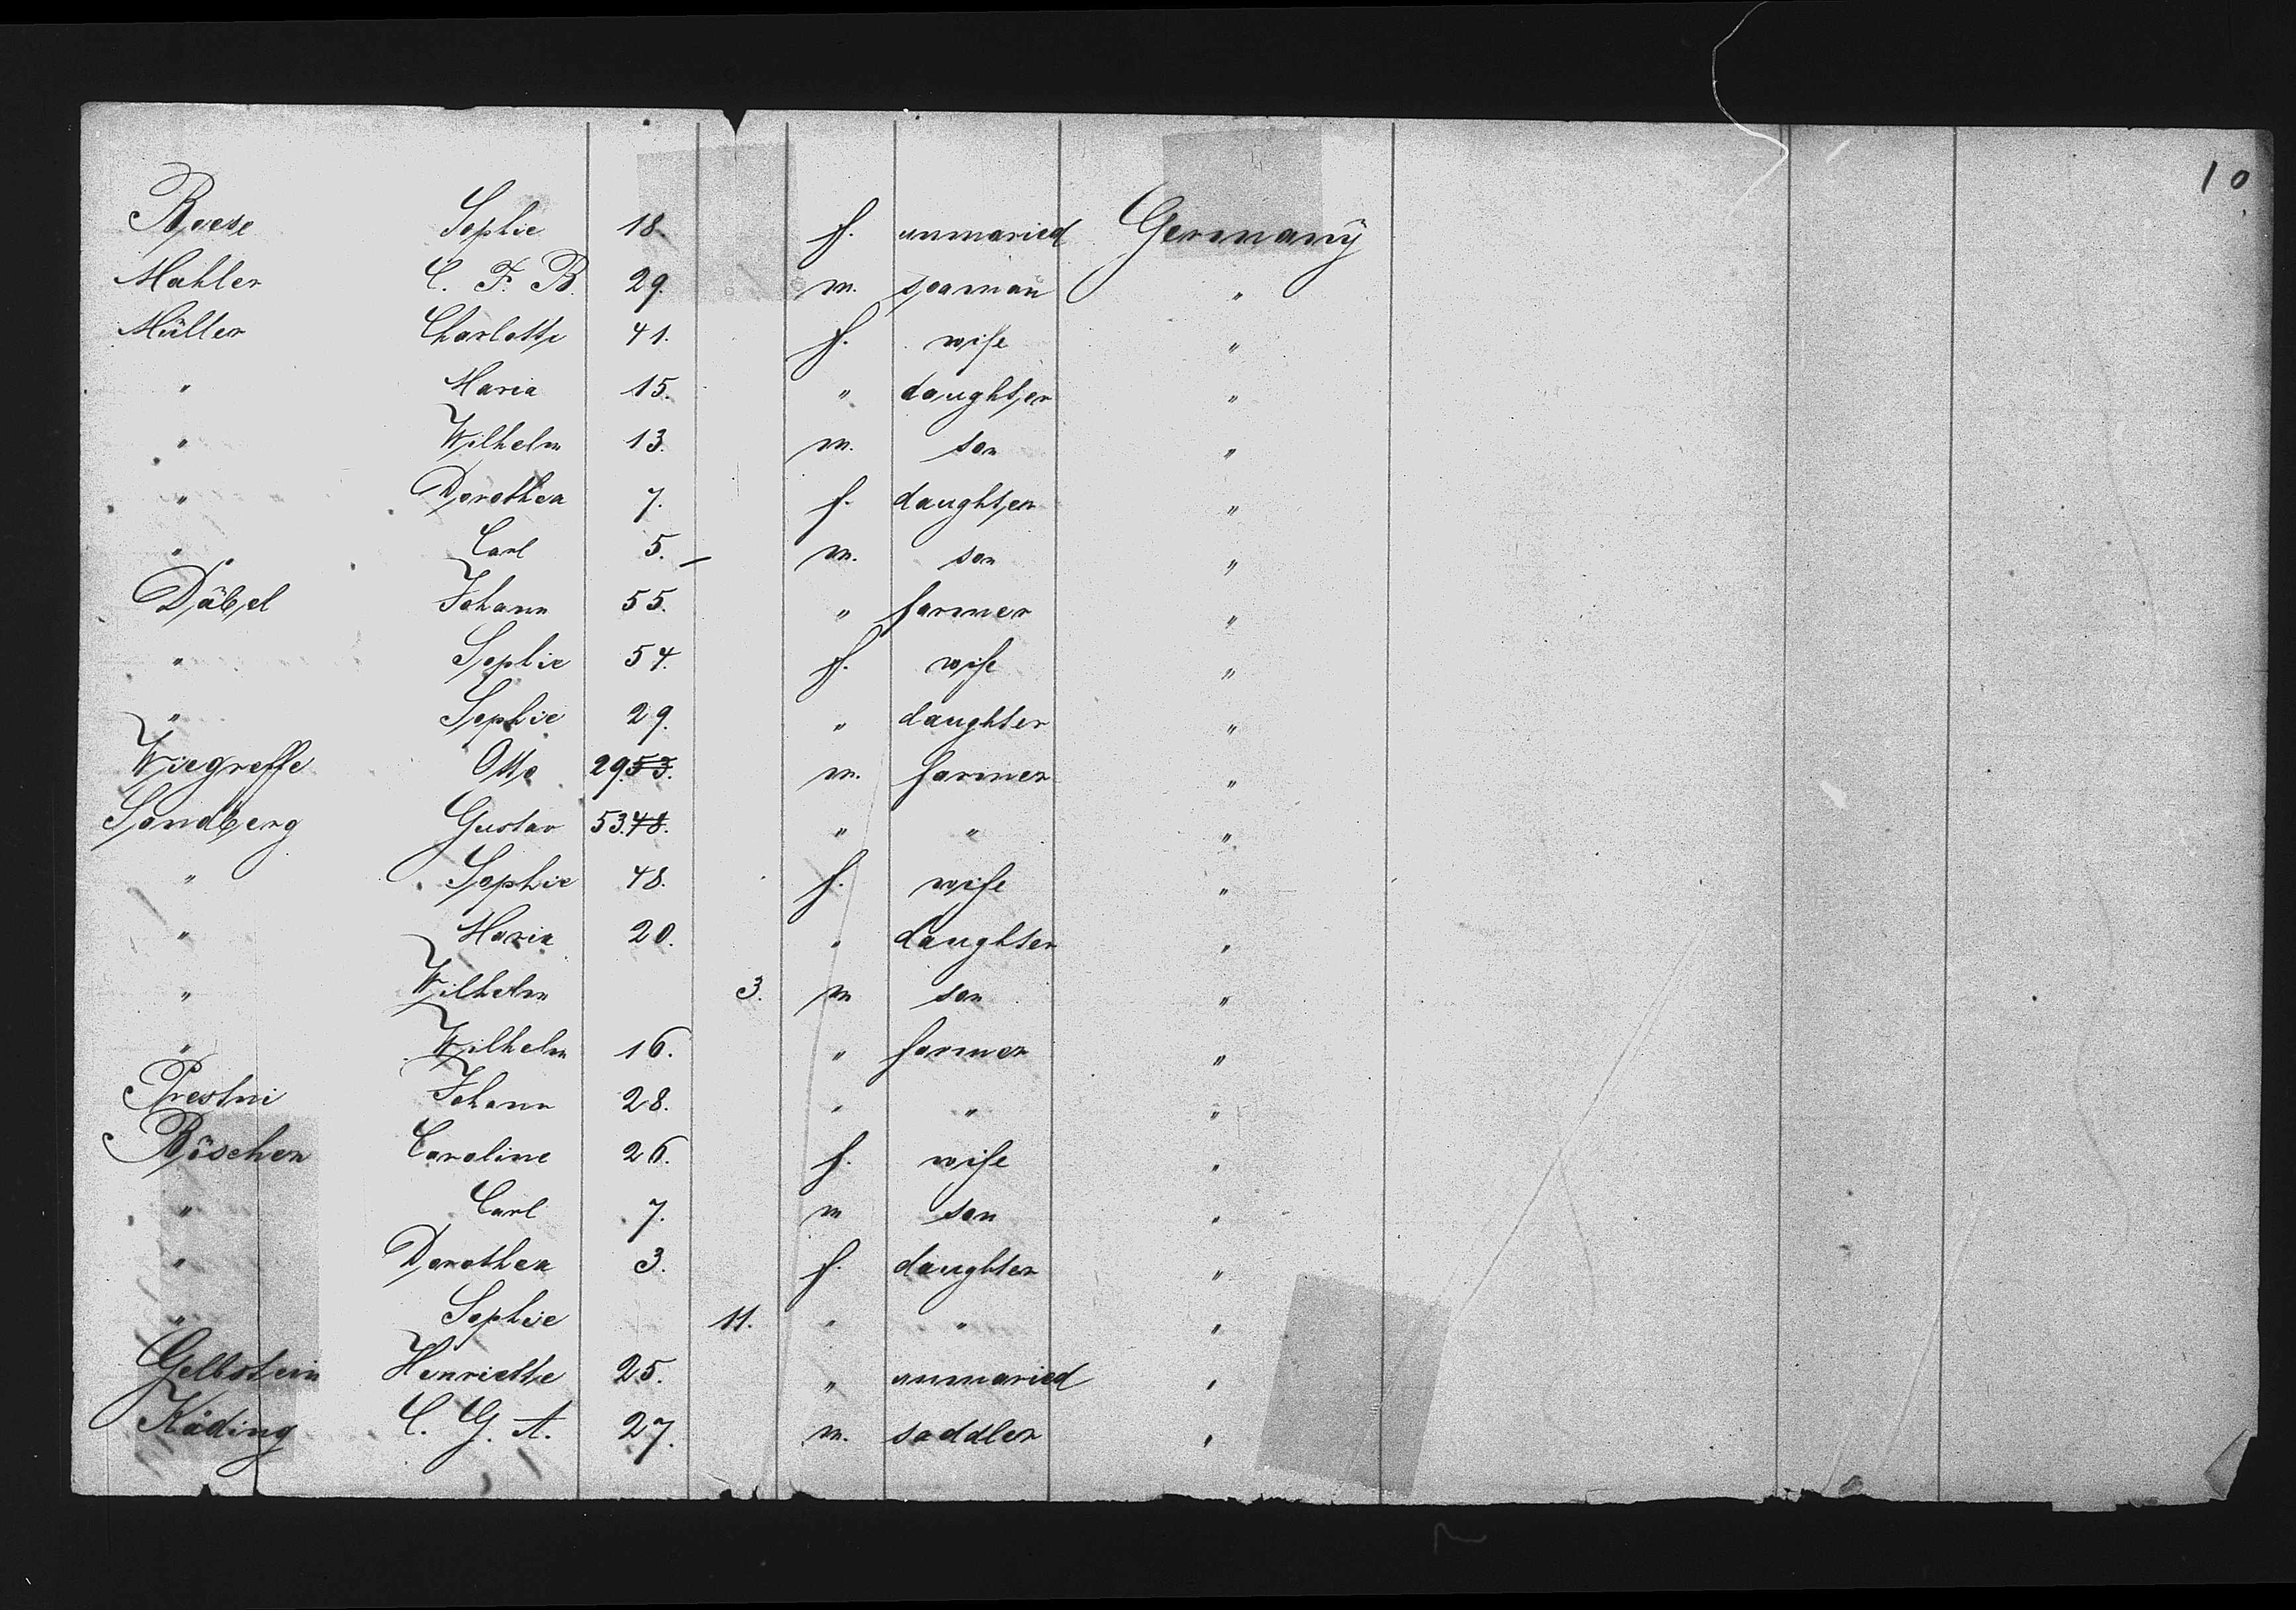 10
Boese Sophie 18. f. unmaried Germany
Mahler C. F. B. 29. m. seaman "
Müller Charlotte 41. f. wife "
" Maria 15. " daughter "
" Wilhelm 13. m. son "
" Dorothea 7. f. daughter "
" Carl 5. – m. son "
Däbel Johann 55. " farmer "
" Sophie 54. f. wife "
" Sophie 29. " daughter "
Wiegreffe Otto 29. 53. m. farmer "
Sandberg Gustav 53. 48. " " "
" Sophie 48. f. wife "
" Maria 20. " daughter "
" Wilhelm 3. m son "
" Wilhelm 16. " farmer "
Johann 28. " " "
Böschen Caroline 26. f. wife "
" Carl 7. m son "
" Dorothea 3. f. daughter "
" Sophie 11. " " "
Gelbstein Henriette 25. " unmaried "
Käding C. G. A. 27. m. saddler "